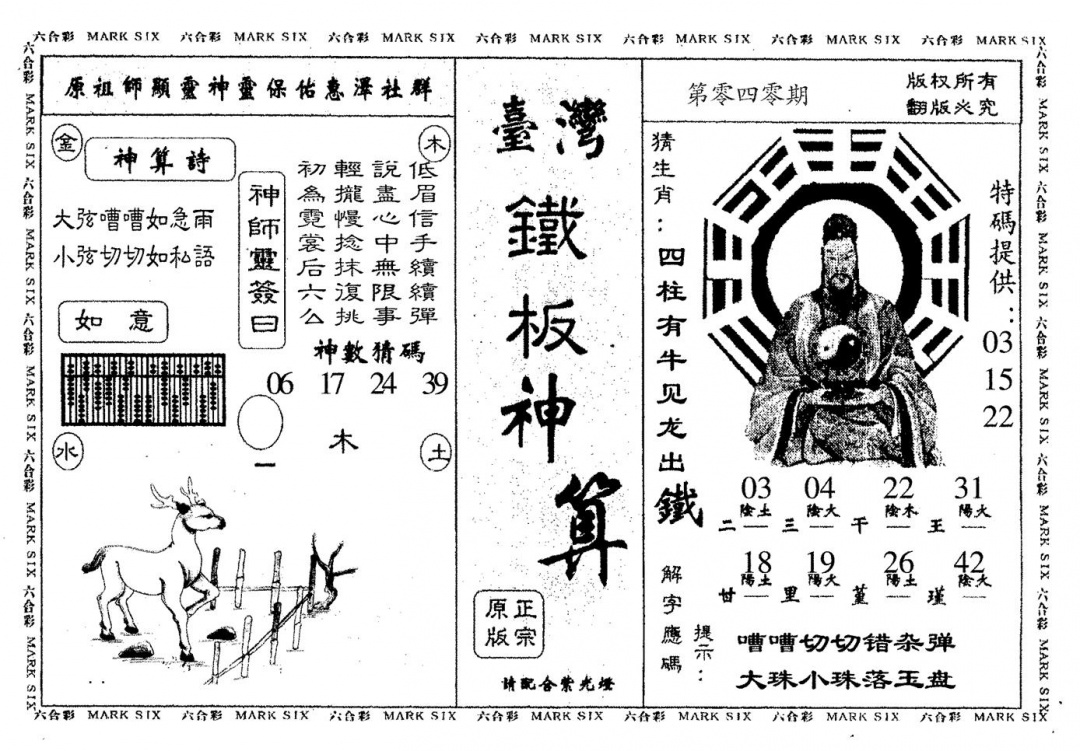 六合彩 MARK SIX 六合彩 MARK SIX 六合彩 MARK SIX 六合彩 MARK SIX 六合彩 MARK SIX 六合彩 MARK SIX 六合彩 MARK SIX
六合彩 MARK SIX 六合彩 MARK SIX 六合彩 MARK SIX 六合彩 MARK SIX 六合彩 MARK SIX
原祖師顯靈神靈保佑惠澤社群
金
木
神算詩
大弦嘈嘈如急雨
小弦切切如私語
如意
神師靈簽曰
低眉信手續續彈
說盡心中無限事
輕攏慢捻抹復挑
初為霓裳后六么
神數猜碼
06 17 24 39
木
水
土
一
臺灣
鐵板神算
正宗
原版
請配合紫光燈
第零四零期
版权所有
翻版必究
猜生肖：四柱有牛见龙出鐵
特碼提供：
03
15
22
03 04 22 31
陰土 陰火 陰木 陽火
二 三 干 王
18 19 26 42
陽土 陽火 陽土 陰火
甘 里 堇 瑾
解字應碼
提示：
嘈嘈切切错杂弹
大珠小珠落玉盘
六合彩 MARK SIX 六合彩 MARK SIX 六合彩 MARK SIX 六合彩 MARK SIX 六合彩 MARK SIX
六合彩 MARK SIX 六合彩 MARK SIX 六合彩 MARK SIX 六合彩 MARK SIX 六合彩 MARK SIX 六合彩 MARK SIX 六合彩 MARK SIX